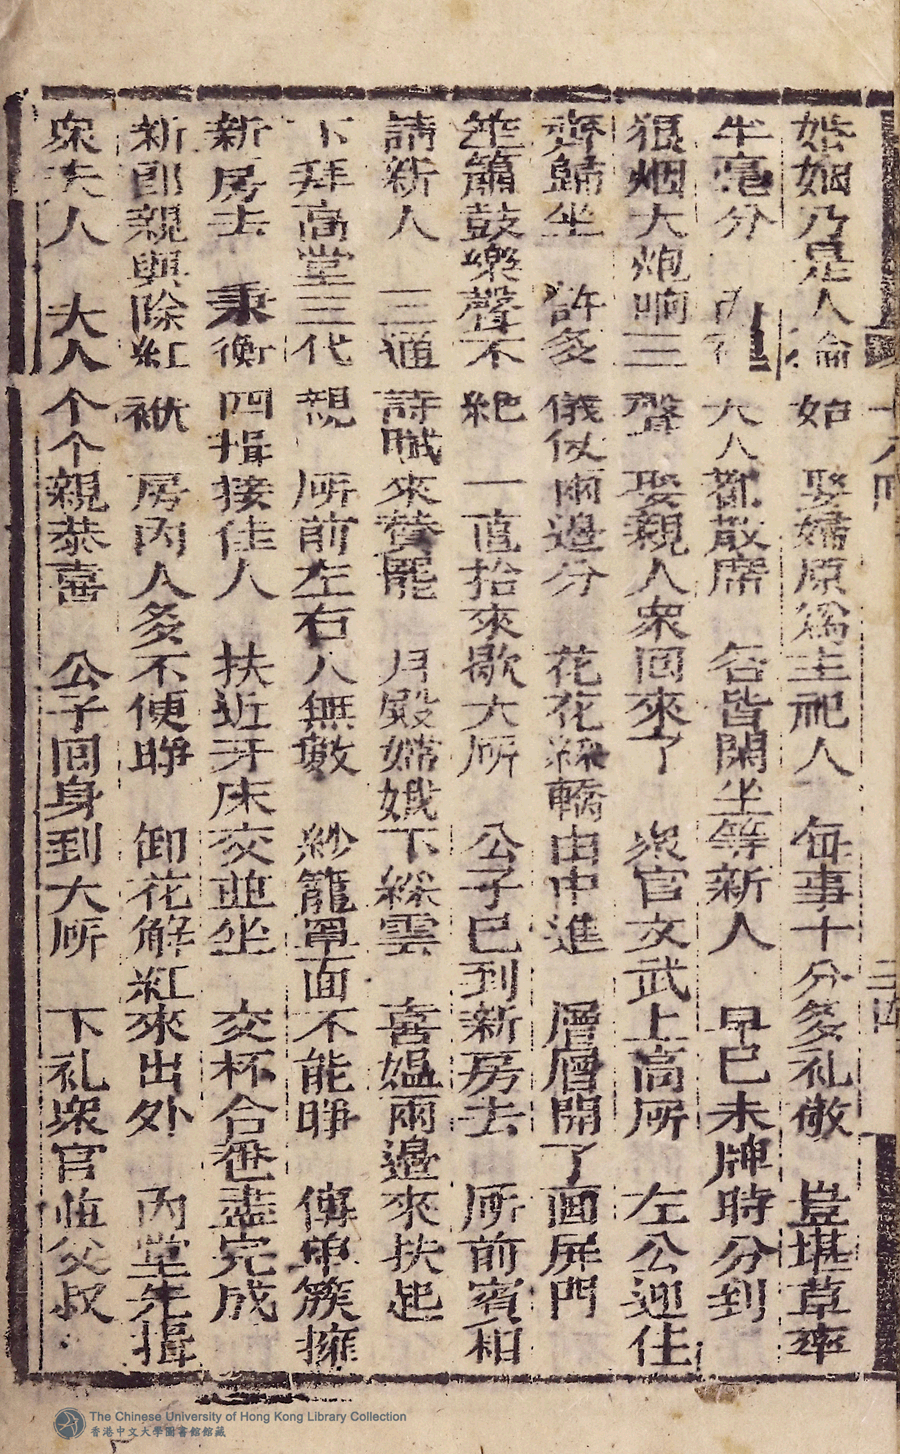 婚姻乃是人倫始　娶婦原為主祀人　每事十分多礼敬　豈堪草率
半毫分　　　　大人都散席　各皆閑坐等新人　早已未牌時分到
狠烟大炮响三聲　娶親人衆回來了　衆官文武上高所　左公迎住
齊歸坐　許多儀仗兩邊分　花花綵轎由中進　層層開了面屏門
笙簫鼓樂聲不絶　一直抬來歇大所　公子已到新房去　所前賓相
請新人　三通詩賦來賛罷　月殿嫦娥下綵雲　喜媪兩邊來扶起
下拜高堂三代親　所前左右人無數　紗籠罩面不能睁　傳車簇擁
新房去　秉衡四揖接佳人　扶近牙床交並坐　交杯合卺盡完成
新郎親與除紅袱　房內人多不便睁　卸花解紅來出外　內堂先揖
衆夫人　大人个个親恭喜　公子回身到大所　下礼衆官並父叔
十八回
三四
The Chinese University of Hong Kong Library Collection
香港中文大學圖書館館藏